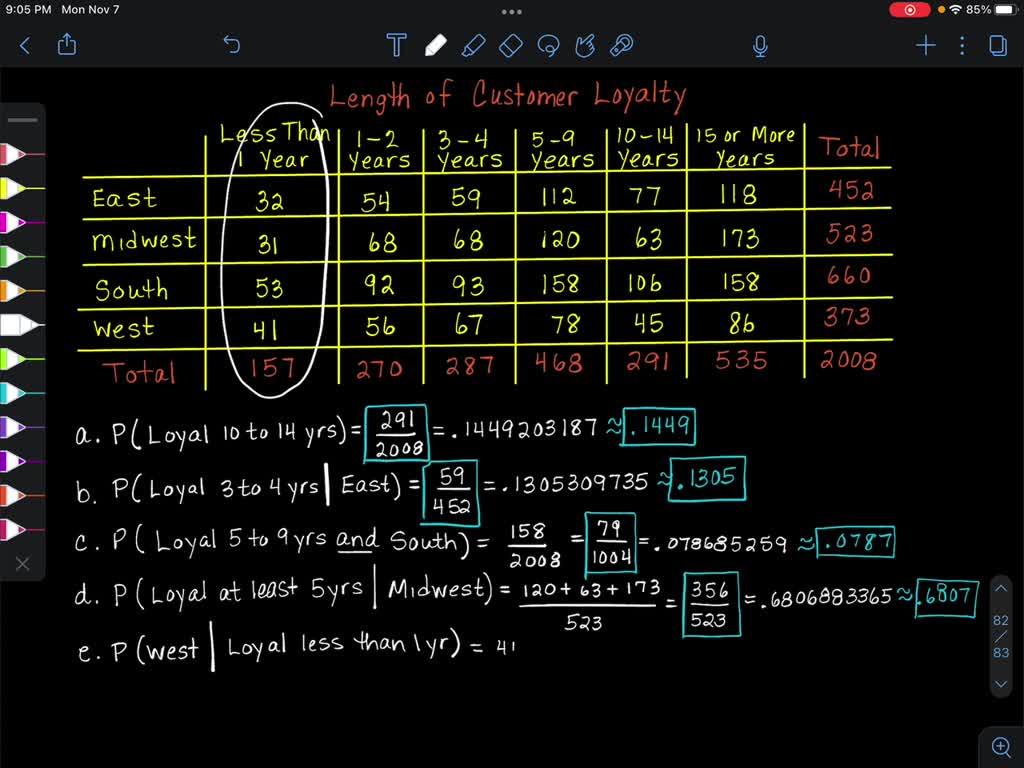 9:05 PM Mon Nov 7 85%
T
Length of Customer Loyalty
Less Than 1 Year 1-2 Years 3-4 Years 5-9 Years 10-14 Years 15 or More Years Total
East 32 54 59 112 77 118 452
Midwest 31 68 68 120 63 173 523
South 53 92 93 158 106 158 660
West 41 56 67 78 45 86 373
Total 157 270 287 468 291 535 2008
a. P(Loyal 10 to 14 yrs) = 291/2008 = .1449203187 ≈ .1449
b. P(Loyal 3 to 4 yrs | East) = 59/452 = .1305309735 ≈ .1305
c. P(Loyal 5 to 9 yrs and South) = 158/2008 = 79/1004 = .078685259 ≈ .0787
d. P(Loyal at least 5 yrs | Midwest) = 120+63+173/523 = 356/523 = .6806883365 ≈ .6807
e. P(west | Loyal less than 1 yr) = 41
82
/
83